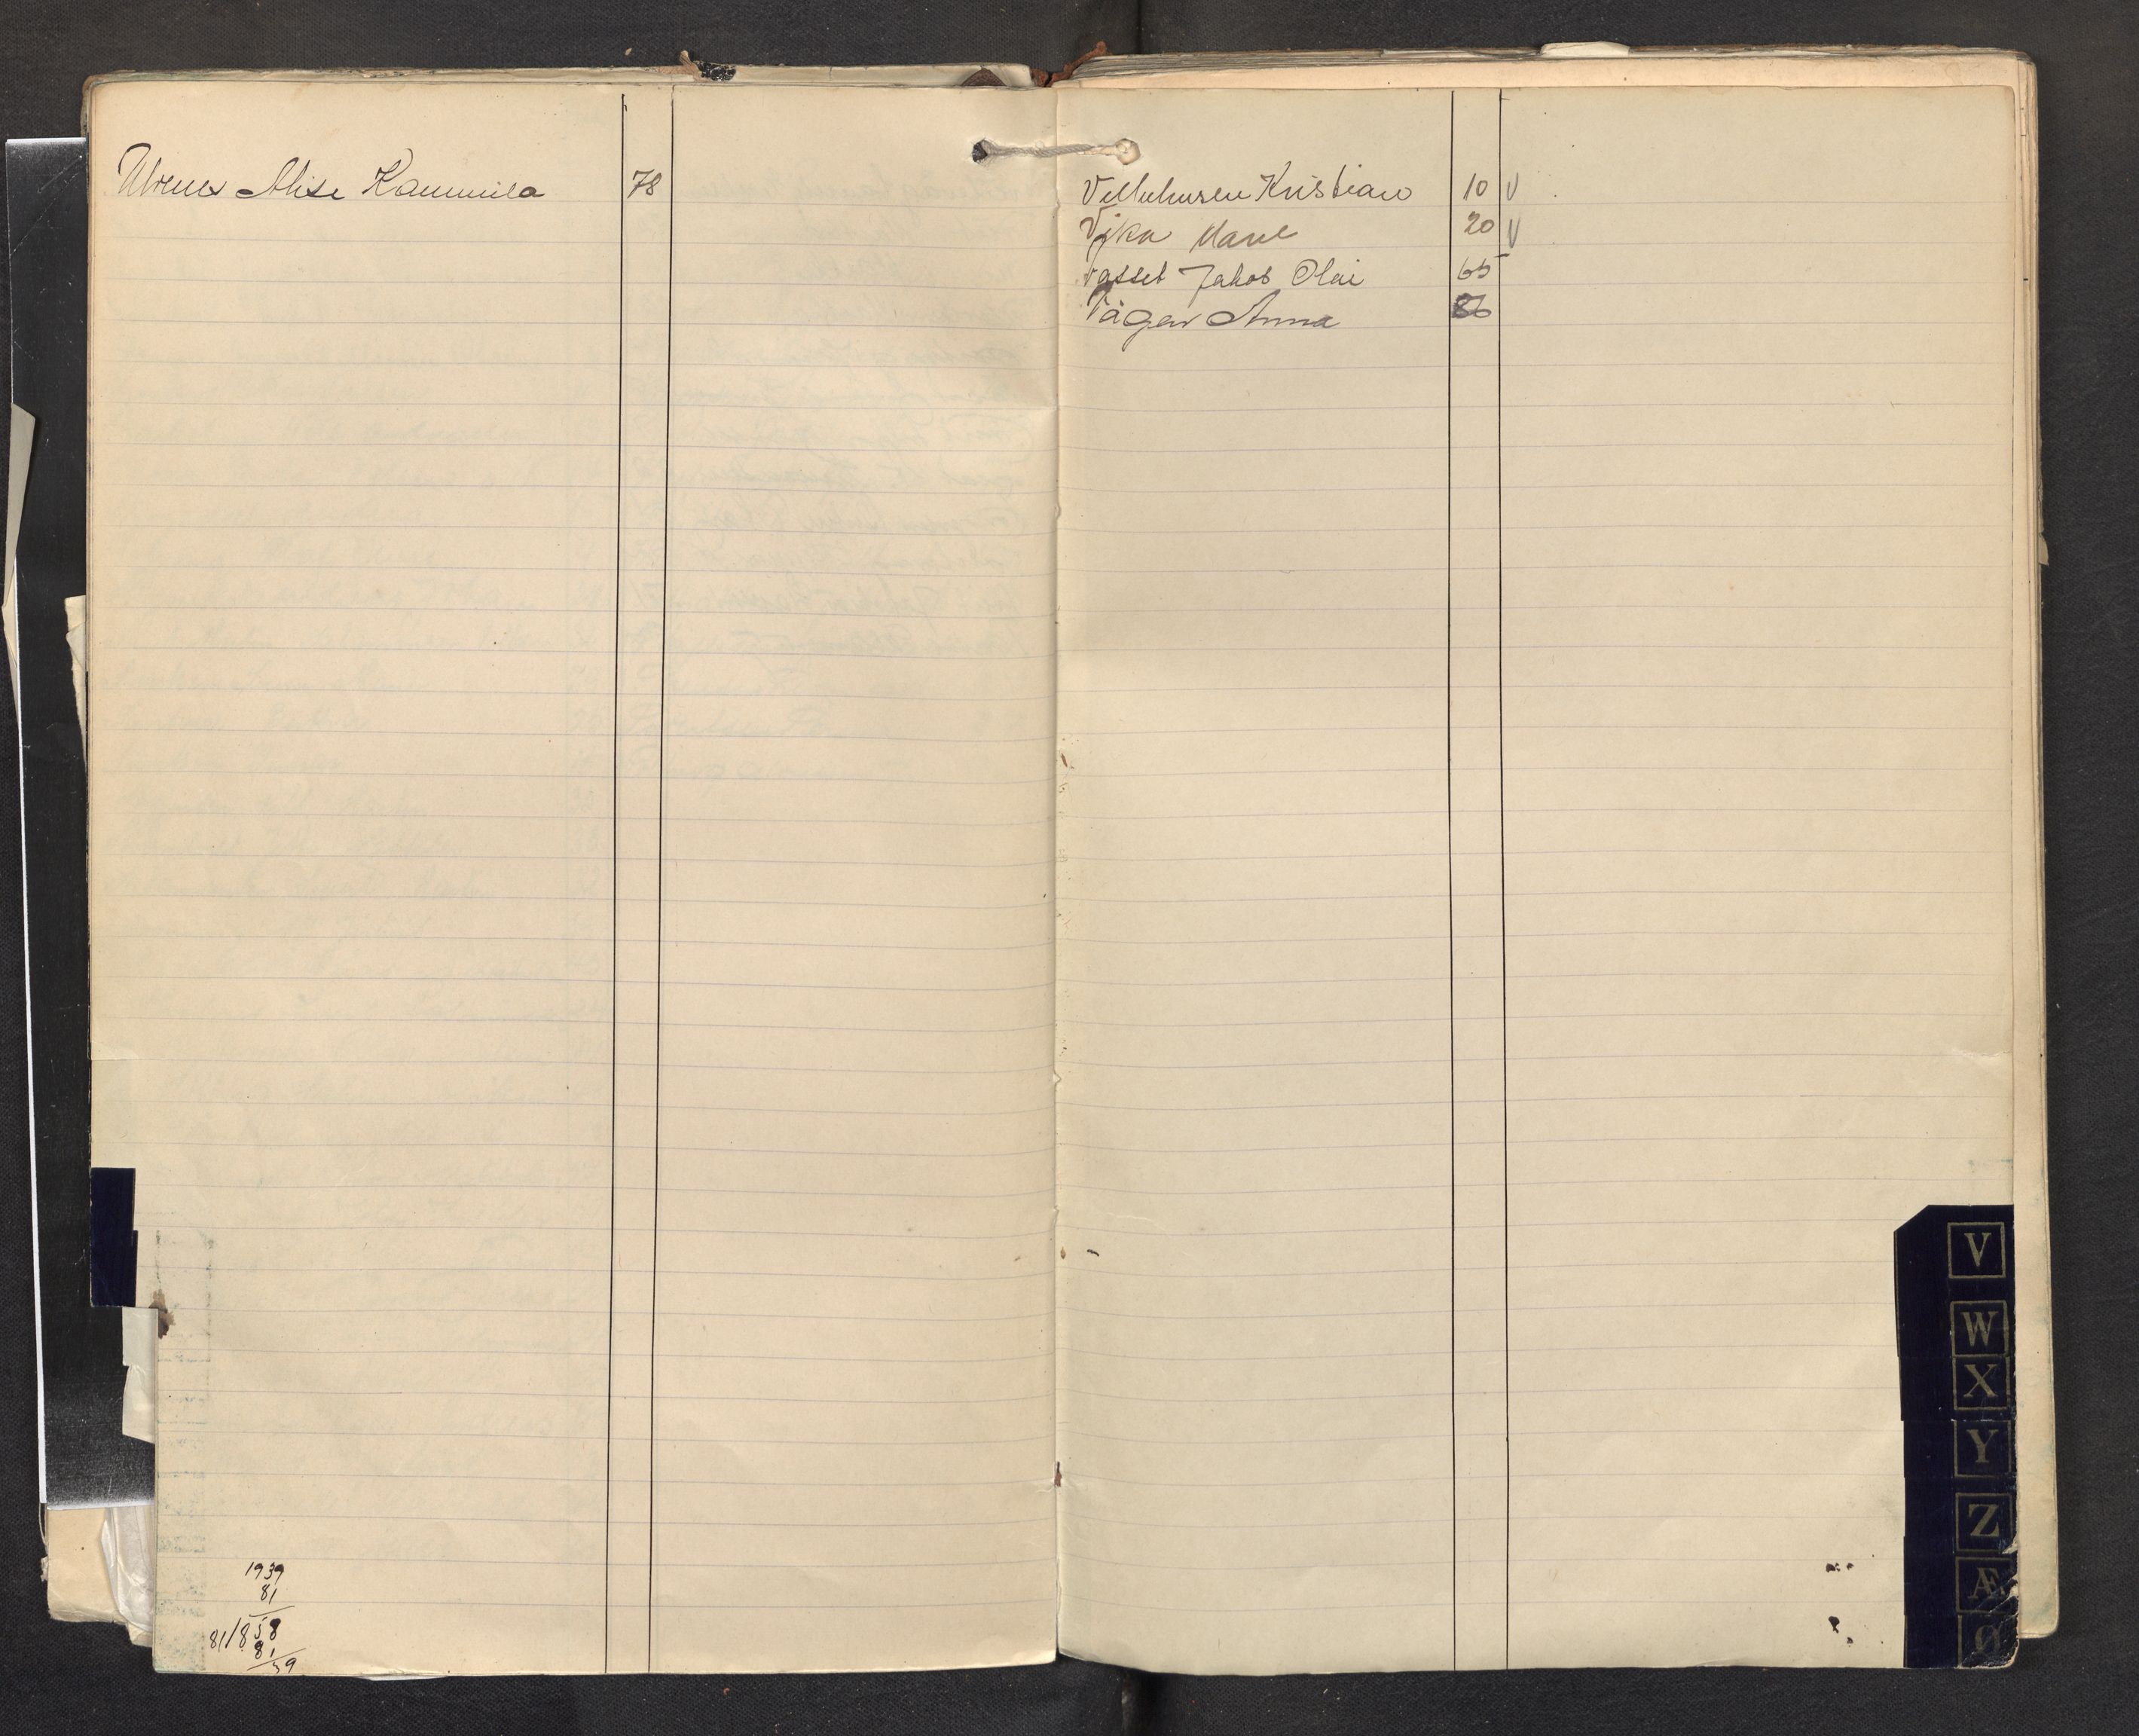 Ulvenes Alise Kammila 78
Vellehusen Kristian 10 V
Vika Marl 20 V
Vasset Jakob Olai 65
Vågen Anna 86
1939
81
81/858
81
V
W
X
Y
Z
Æ
Ø